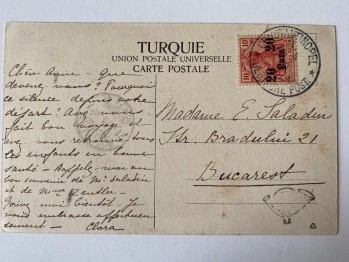 TURQUIE
UNION POSTALE UNIVERSELLE
CARTE POSTALE
10 10
20 Para 20
CONSTANTINOPEL
DEUTSCHE POST
Chère Anne – que
devenez-vous? Pourquoi
ce silence depuis votre
départ? Avez vous
fait bon voyage et
avez vous retrouvé tous
les enfants en bonne
santé –
bon souvenir de Mr Saladin
et de
moi bientôt. Je
vous embrasse affectueu
sement
Clara
Madame E. Saladin
Str. Bradului 21
Bucarest